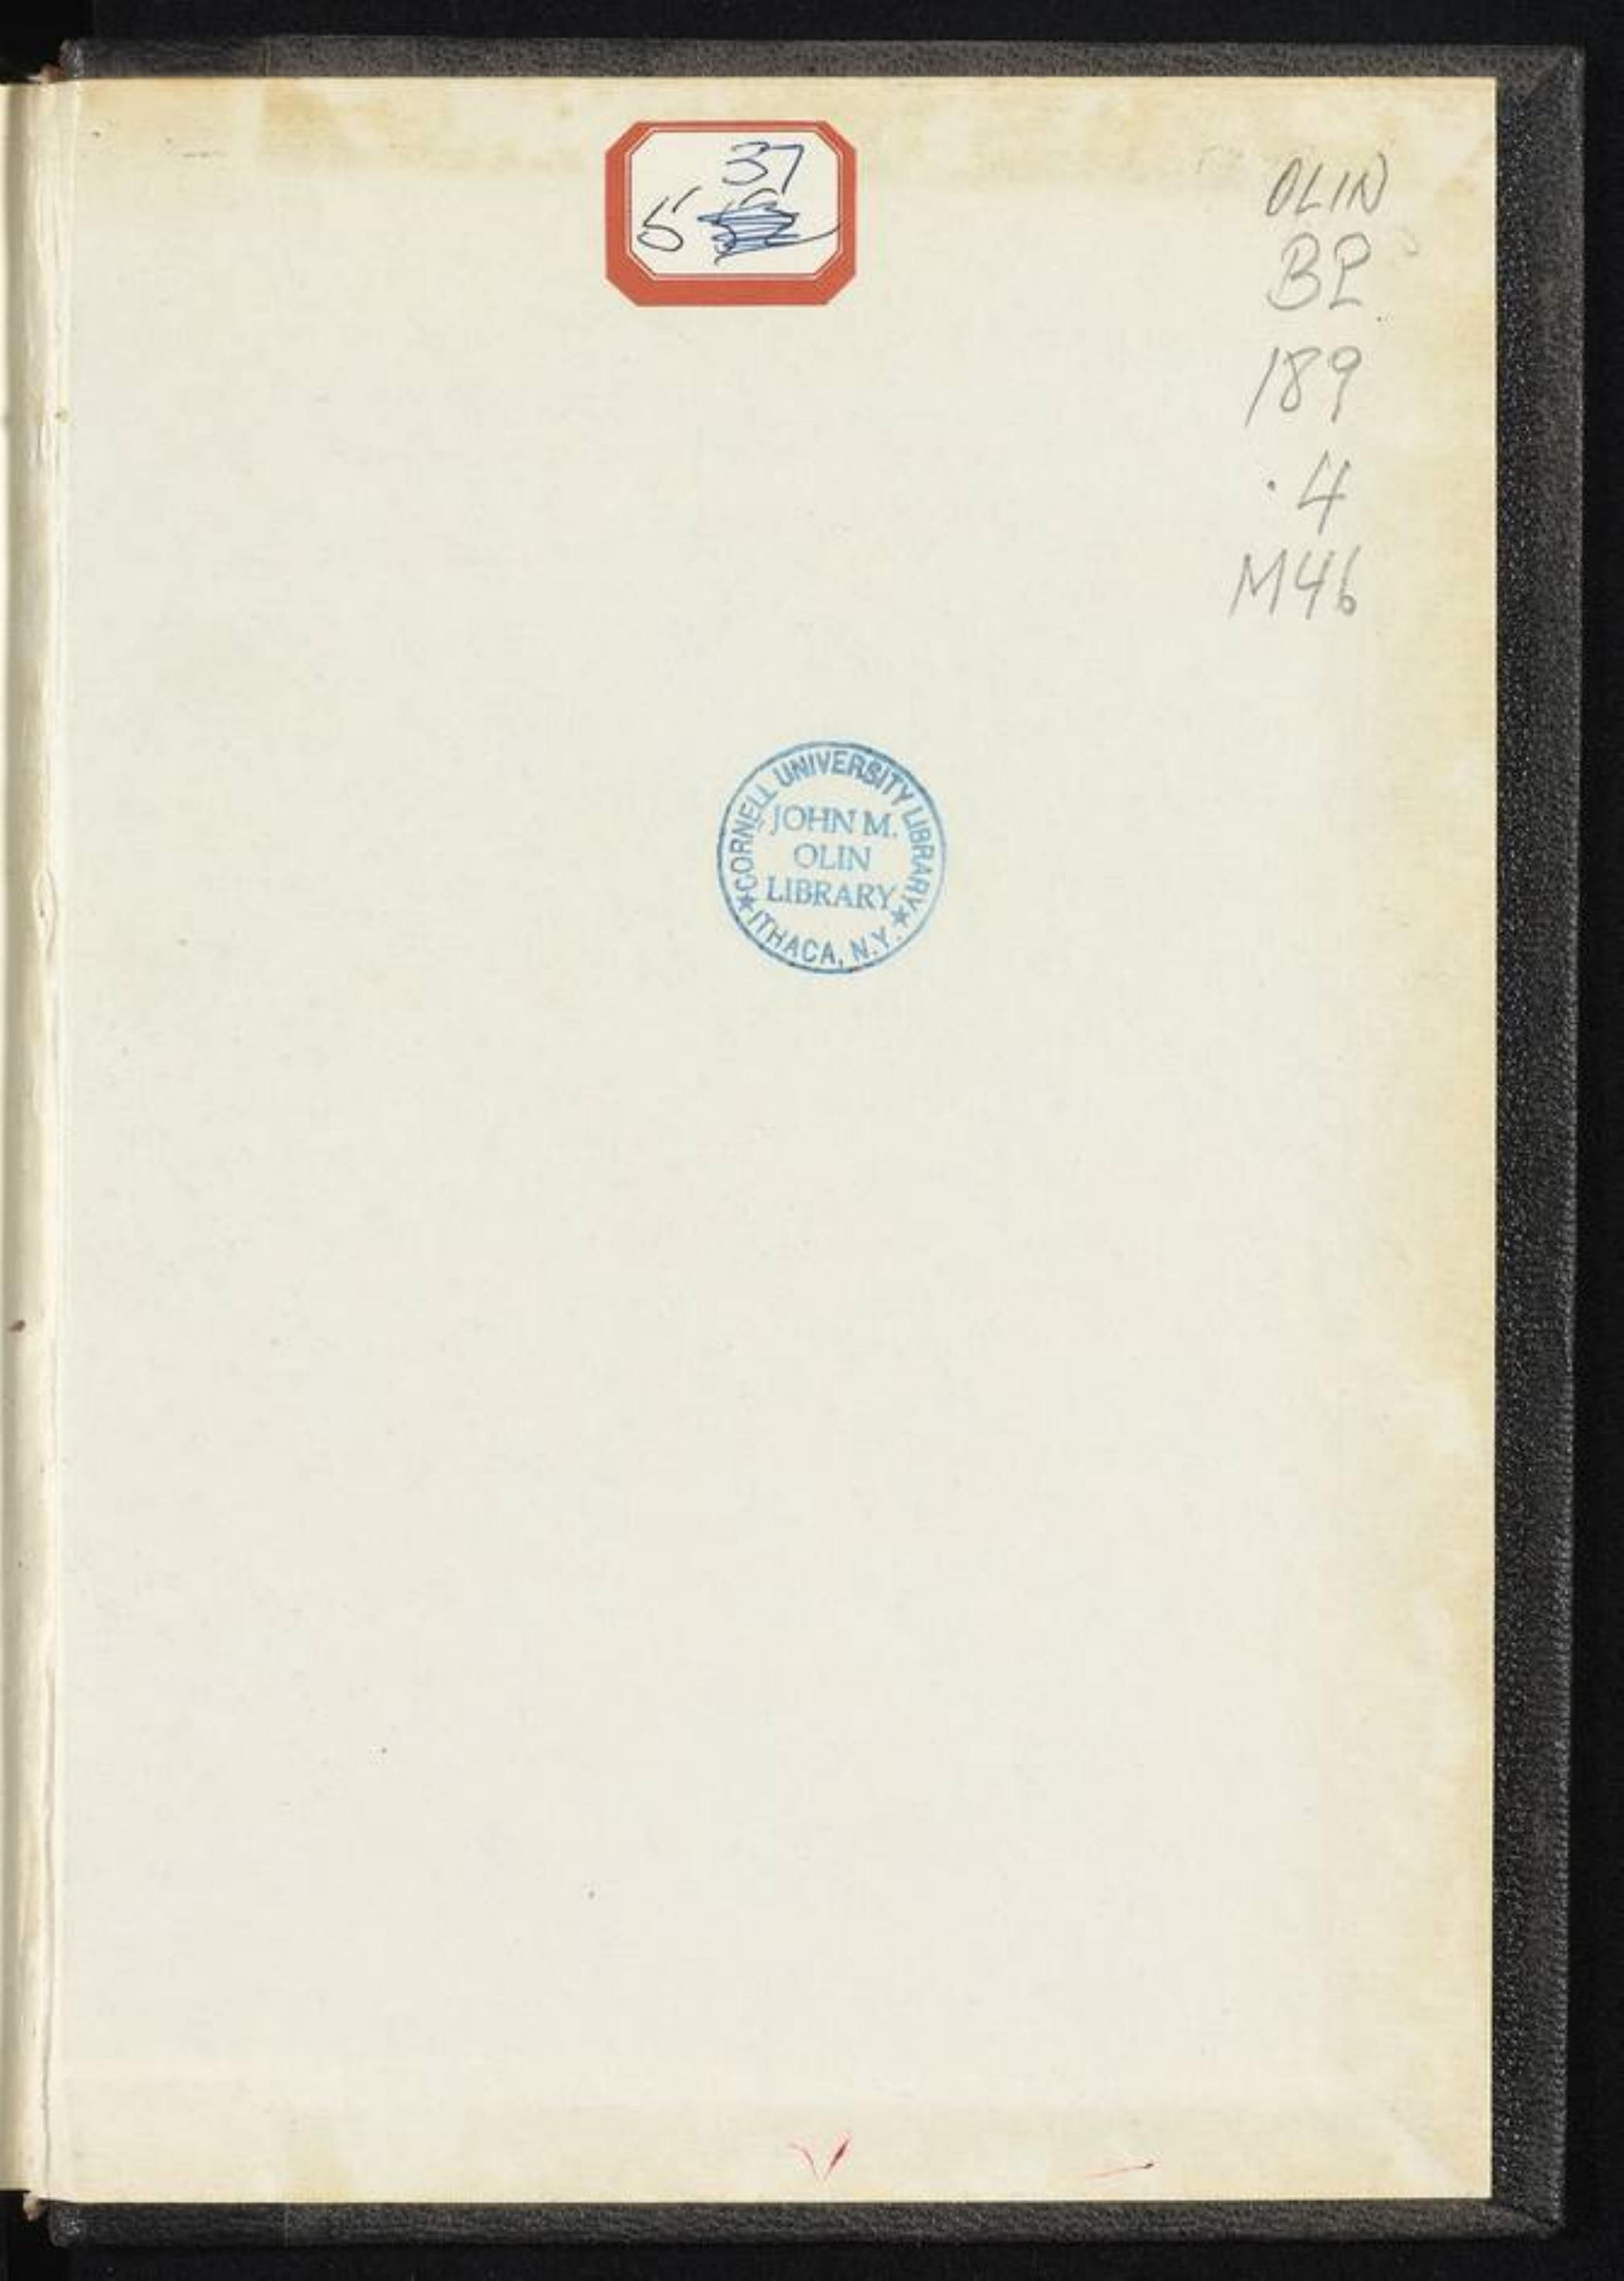 37
5
OLIN
BP
189
.4
M46
★ CORNELL UNIVERSITY LIBRARY ★
JOHN M.
OLIN
LIBRARY
ITHACA, N.Y.